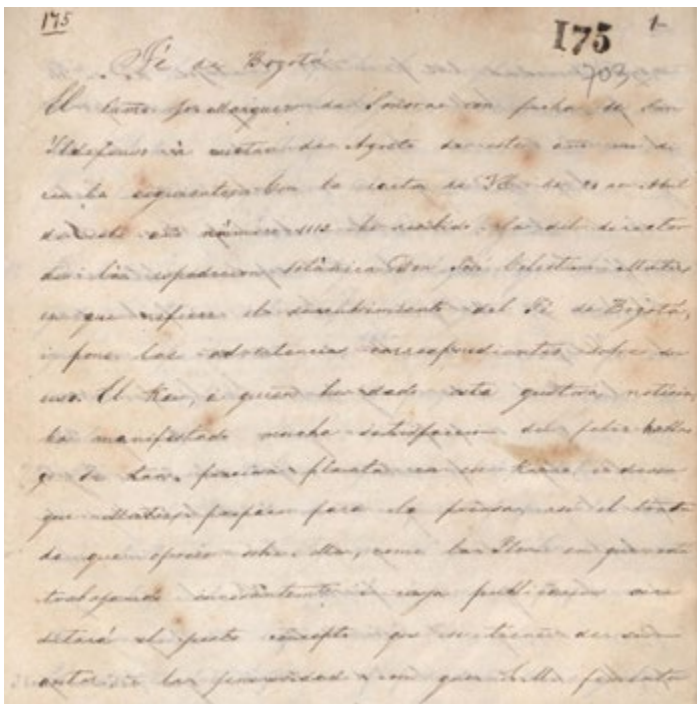 175
175 1
703
Té de Bogotá
El Marques de Sonora con fecha de San
Ildefonso á de Agosto de este me di
ce lo siguiente Con la carta de VE de de Abril
de este año número he recibido la del director
de la espedicion botánica Don José Celestino Mutis,
en que refiere el descubrimiento del Té de Bogotá,
i pone las advertencias correspondientes sobre su
uso. El Rei, á quien he dado esta gustosa noticia,
ha manifestado mucha satisfaccion del feliz hallaz
go de tan preciosa planta en su Reino i desea
que Mutis prepare para la prensa el
de que ofrece sobre ella, como la Flora en que está
trabajando incesantemente i cuya publicacion acre
ditará el justo concepto que se tiene de su
autor i la generosidad con que S.M. fomenta